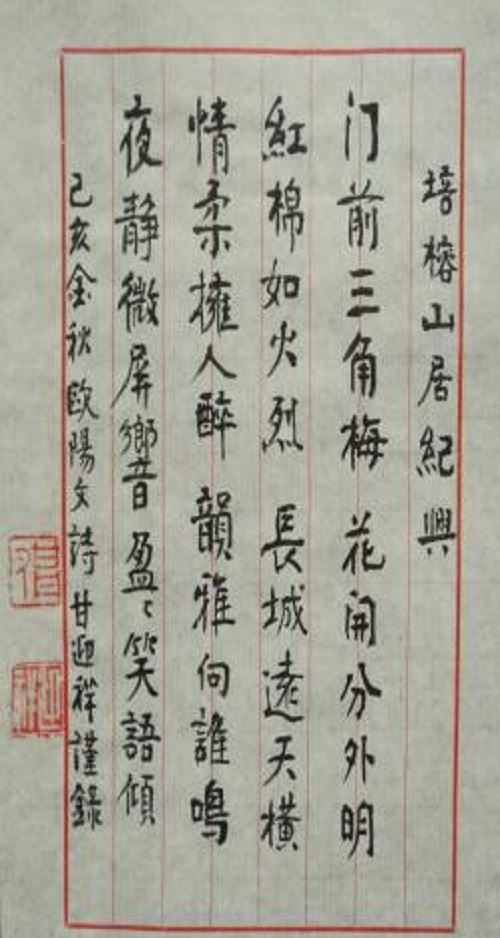 培榕山居紀興
门前三角梅 花開分外明
紅棉如火烈 長城遠天橫
情柔擁人醉 韻雅向誰鳴
夜靜微屏響 盈〻笑語傾
己亥金秋歐陽文詩甘迎祥謹錄